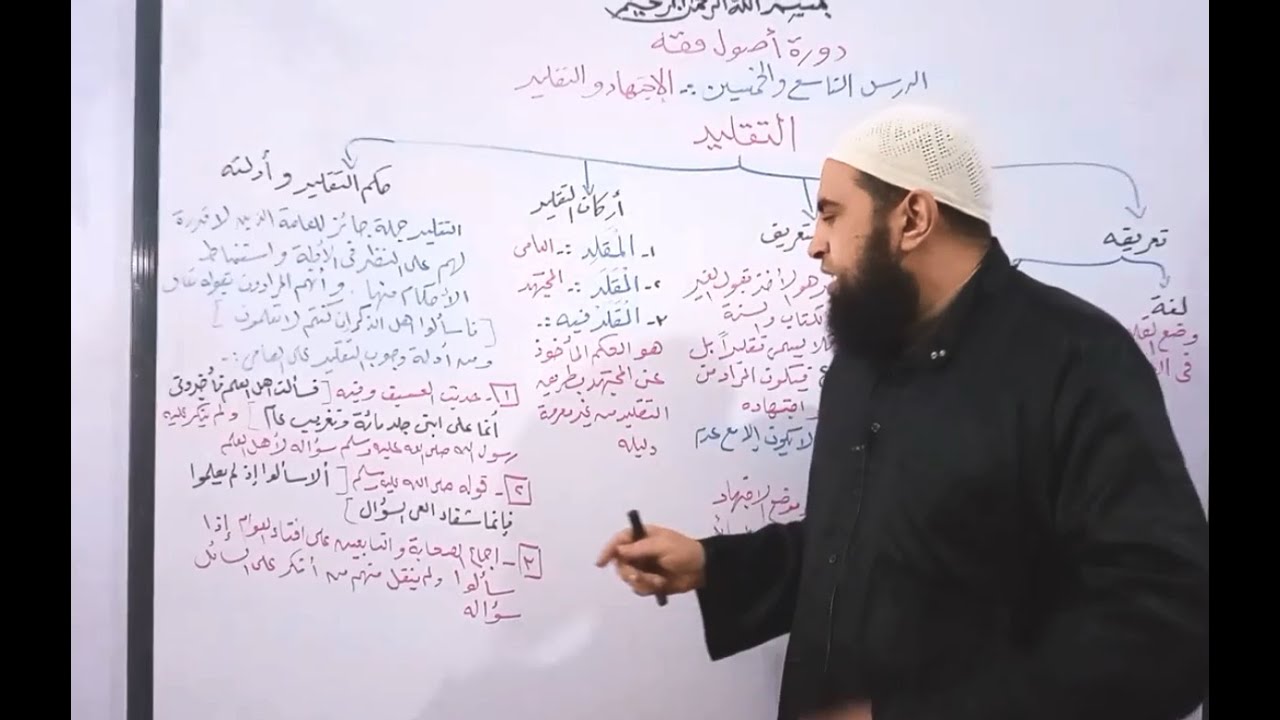 بسم الله الرحمن الرحيم
دورة أصول فقه
الدرس التاسع والخمسين :- الإجتهاد والتقليد
التقليد
تعريفه
لغة
وضع
في
تعريف
هو الأخذ بقول الغير
الكتاب والسنة
فلا يسمى تقليداً بل
فيكون المراد من
اجتهاده
لا يكون إلا مع عدم
موضع الاجتهاد
أركان التقليد
١- المُقلِد :- العامى
٢- المُقلَد :- المجتهد
٣- المُقلَد فيه :-
هو الحكم المأخوذ
عن المجتهد بطريق
التقليد من غير معرفة
دليله
حكم التقليد وأدلته
التقليد جملة جائز للعامة الذين لا قدرة
لهم على النظر في الأدلة واستنباط
الأحكام منها. وأنهم المرادون بقوله تعالى
[فاسألوا أهل الذكر إن كنتم لا تعلمون]
ومن أدلة وجوب التقليد على العامى :-
١- حديث العسيف وفيه [فسألت أهل العلم فأخبرونى
أنما على ابنى جلد مائة وتغريب عام] ولم ينكر عليه
رسول الله صلى الله عليه وسلم سؤاله لأهل العلم
٢- قوله صلى الله عليه وسلم [ألا سألوا إذ لم يعلموا
فإنما شفاء العى السؤال]
٣- إجماع الصحابة والتابعين على افتاء العوام إذا
سألوا ولم ينقل منهم من أنكر على السائل
سؤاله